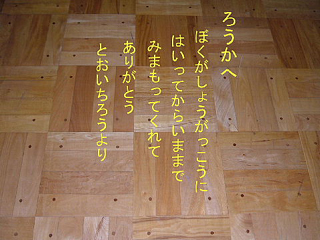 ろうかへ
ぼくがしょうがっこうに
はいってからいままで
みまもってくれて
ありがとう
とおいちろうより